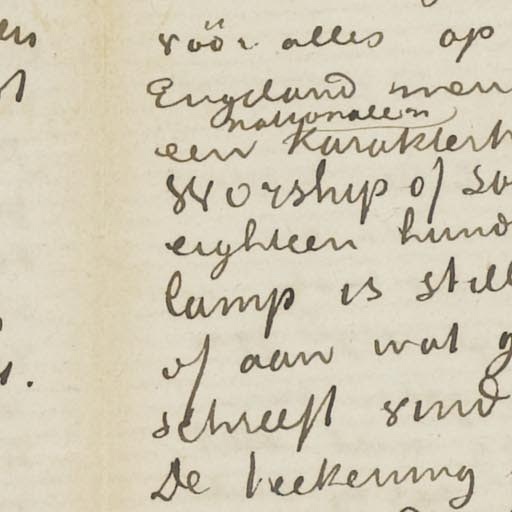 vóór alles op
Engeland men
nationalen
een Karakter
Worship of So
eighteen hund
lamp is still
of aan wat g
schreeft vind
De teekening